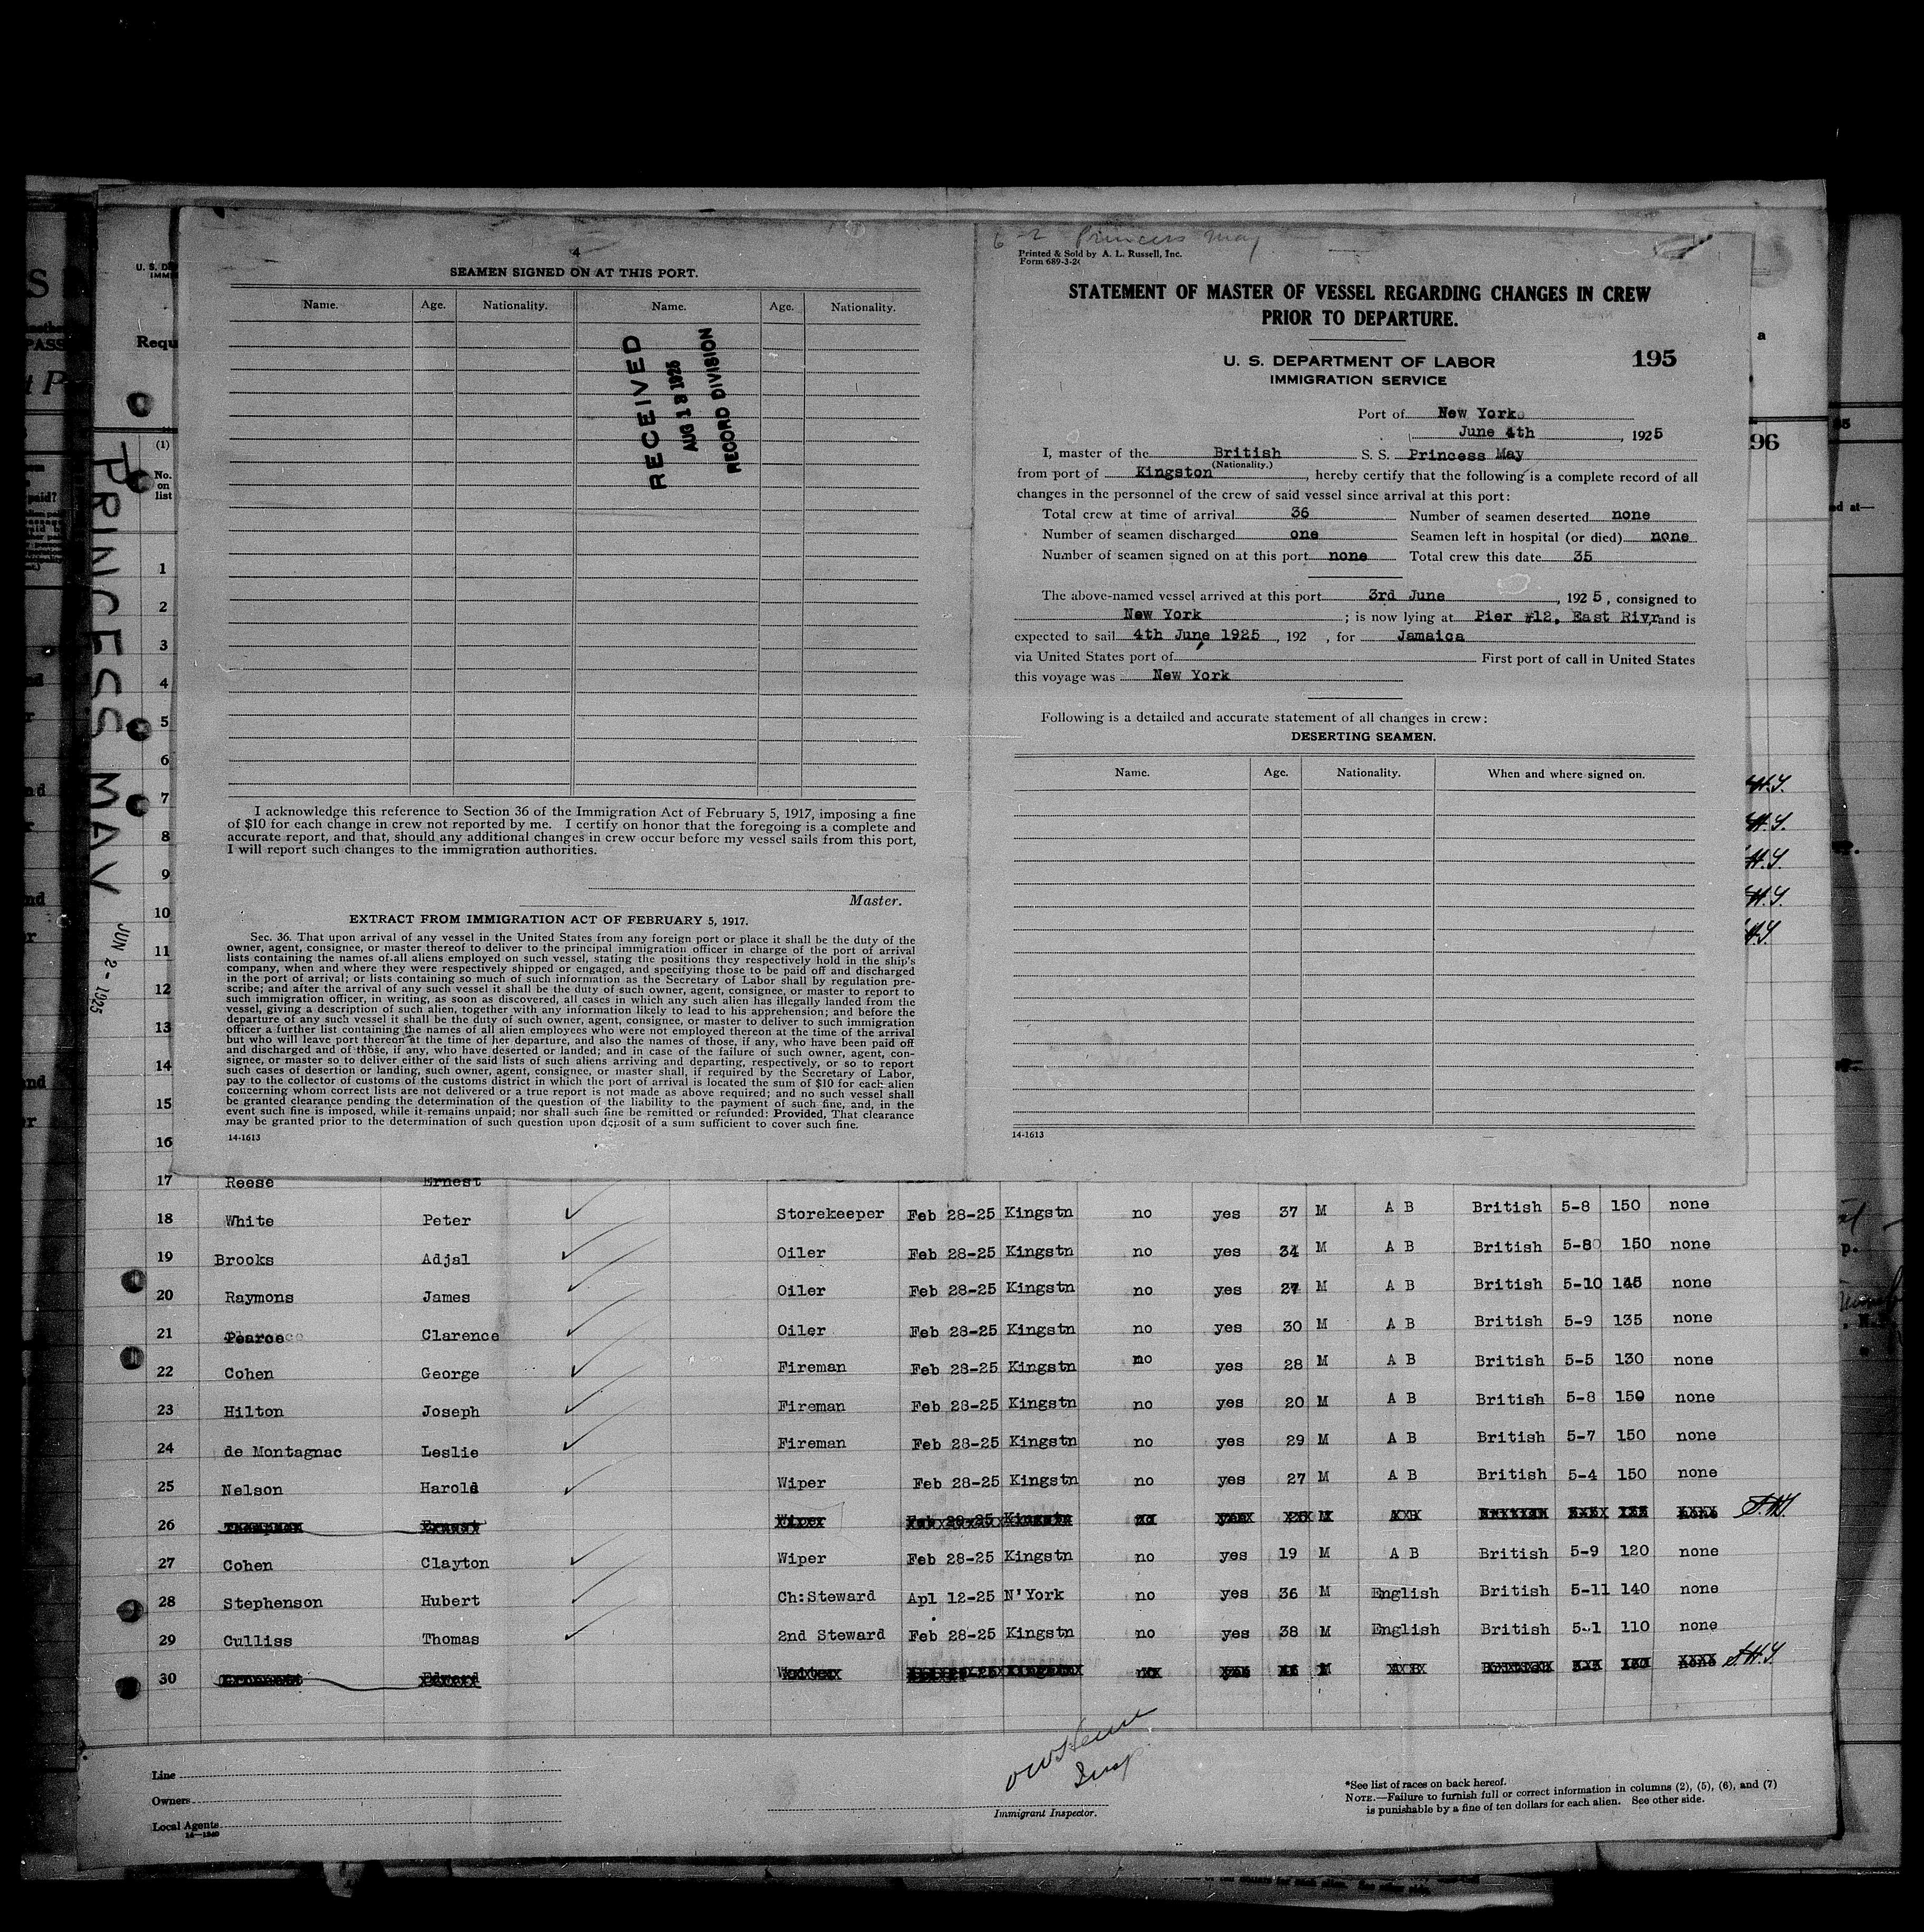 4
SEAMEN SIGNED ON AT THIS PORT.
Name. Age. Nationality. Name. Age. Nationality.
RECEIVED
AUG 18 1925
RECORD DIVISION
I acknowledge this reference to Section 36 of the Immigration Act of February 5, 1917, imposing a fine
of $10 for each change in crew not reported by me. I certify on honor that the foregoing is a complete and
accurate report, and that, should any additional changes in crew occur before my vessel sails from this port,
I will report such changes to the immigration authorities.
Master.
EXTRACT FROM IMMIGRATION ACT OF FEBRUARY 5, 1917.
Sec. 36. That upon arrival of any vessel in the United States from any foreign port or place it shall be the duty of the
owner, agent, consignee, or master thereof to deliver to the principal immigration officer in charge of the port of arrival
lists containing the names of all aliens employed on such vessel, stating the positions they respectively hold in the ship's
company, when and where they were respectively shipped or engaged, and specifying those to be paid off and discharged
in the port of arrival; or lists containing so much of such information as the Secretary of Labor shall by regulation pre-
scribe; and after the arrival of any such vessel it shall be the duty of such owner, agent, consignee, or master to report to
such immigration officer, in writing, as soon as discovered, all cases in which any such alien has illegally landed from the
vessel, giving a description of such alien, together with any information likely to lead to his apprehension; and before the
departure of any such vessel it shall be the duty of such owner, agent, consignee, or master to deliver to such immigration
officer a further list containing the names of all alien employees who were not employed thereon at the time of the arrival
but who will leave port thereon at the time of her departure, and also the names of those, if any, who have been paid off
and discharged and of those, if any, who have deserted or landed; and in case of the failure of such owner, agent, con-
signee, or master so to deliver either of the said lists of such aliens arriving and departing, respectively, or so to report
such cases of desertion or landing, such owner, agent, consignee, or master shall, if required by the Secretary of Labor,
pay to the collector of customs of the customs district in which the port of arrival is located the sum of $10 for each alien
concerning whom correct lists are not delivered or a true report is not made as above required; and no such vessel shall
be granted clearance pending the determination of the question of the liability to the payment of such fine, and, in the
event such fine is imposed, while it remains unpaid; nor shall such fine be remitted or refunded: Provided, That clearance
may be granted prior to the determination of such question upon deposit of a sum sufficient to cover such fine.
14-1613
6-2 Princess May
Printed & Sold by A. L. Russell, Inc.
Form 689-3-2
STATEMENT OF MASTER OF VESSEL REGARDING CHANGES IN CREW
PRIOR TO DEPARTURE.
U. S. DEPARTMENT OF LABOR
IMMIGRATION SERVICE
195
Port of New York
June 4th, 1925
I, master of the British S. S. Princess May
(Nationality.)
from port of Kingston, hereby certify that the following is a complete record of all
changes in the personnel of the crew of said vessel since arrival at this port:
Total crew at time of arrival 36 Number of seamen deserted none
Number of seamen discharged one Seamen left in hospital (or died) none
Number of seamen signed on at this port none Total crew this date 35
The above-named vessel arrived at this port 3rd June, 1925, consigned to
New York; is now lying at Pier #12, East Rivr, and is
expected to sail 4th June 1925, 192 , for Jamaica
via United States port of First port of call in United States
this voyage was New York
Following is a detailed and accurate statement of all changes in crew:
DESERTING SEAMEN.
Name. Age. Nationality. When and where signed on.
14-1613
PRINCESS MAY
JUN 2 - 1925
Requ
(1)
No.
on
list
96
1
2
3
4
5
6
7
8
9
10
11
12
13
14
15
16
17 Reese Ernest
18 White Peter Storekeeper Feb 28-25 Kingstn no yes 37 M A B British 5-8 150 none
19 Brooks Adjal Oiler Feb 28-25 Kingstn no yes 34 M A B British 5-8 150 none
20 Raymons James Oiler Feb 28-25 Kingstn no yes 27 M A B British 5-10 145 none
21 Pearce Clarence Oiler Feb 28-25 Kingstn no yes 30 M A B British 5-9 135 none
22 Cohen George Fireman Feb 28-25 Kingstn no yes 28 M A B British 5-5 130 none
23 Hilton Joseph Fireman Feb 28-25 Kingstn no yes 20 M A B British 5-8 150 none
24 de Montagnac Leslie Fireman Feb 28-25 Kingstn no yes 29 M A B British 5-7 150 none
25 Nelson Harold Wiper Feb 28-25 Kingstn no yes 27 M A B British 5-4 150 none
26 Ernest Wiper
27 Cohen Clayton Wiper Feb 28-25 Kingstn no yes 19 M A B British 5-9 120 none
28 Stephenson Hubert Ch:Steward Apl 12-25 N'York no yes 36 M English British 5-11 140 none
29 Culliss Thomas 2nd Steward Feb 28-25 Kingstn no yes 38 M English British 5-1 110 none
30 Edward
Line
Owners
Local Agents
14-1240
Insp.
Immigrant Inspector.
*See list of races on back hereof.
NOTE.—Failure to furnish full or correct information in columns (2), (5), (6), and (7)
is punishable by a fine of ten dollars for each alien. See other side.